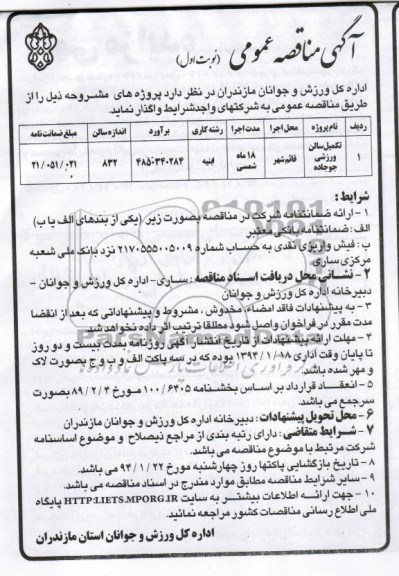 آگهی مناقصه عمومی (نوبت اول)
اداره کل ورزش و جوانان مازندران در نظر دارد پروژه های مشروحه ذیل را از
طریق مناقصه عمومی به شرکتهای واجدشرایط واگذار نماید.
ردیف نام پروژه محل اجرا مدت اجرا رشته کاری برآورد اندازه سالن مبلغ ضمانت نامه
۱ تکمیل سالن ورزشی جوجاده قائم شهر ۱۸ ماه شمسی ابنیه ۸۳۲
شرایط:
۱- ارائه ضمانتنامه شرکت در مناقصه بصورت زیر (یکی از بندهای الف یا ب)
الف: ضمانتنامه بانکی معتبر
ب: فیش واریزی نقدی به حساب شماره ۲۱۷۰۵۵۵۰۰۵۰۰۹ نزد بانک ملی شعبه
مرکزی ساری
۲- نشانی محل دریافت اسناد مناقصه: ساری- اداره کل ورزش و جوانان -
دبیرخانه اداره کل ورزش و جوانان
۳- به پیشنهادات فاقد امضاء، مخدوش، مشروط و پیشنهاداتی که بعد از انقضا
مدت مقرر در فراخوان واصل شود مطلقا ترتیب اثر داده نخواهد شد.
۴- مهلت ارائه پیشنهادات از تاریخ انتشار آگهی روزنامه بمدت بیست و دو روز
تا پایان وقت اداری ۱۳۹۴/۱/۱۸ بوده که در سه پاکت الف و ب و ج بصورت لاک
و مهر شده باشد.
۵- انعقاد قرارداد بر اساس بخشنامه ۱۰۰/۶۴۰۵ مورخ ۸۹/۲/۴ بصورت
سرجمع می باشد.
۶- محل تحویل پیشنهادات: دبیرخانه اداره کل ورزش و جوانان مازندران
۷- شرایط متقاضی: دارای رتبه بندی از مراجع ذیصلاح و موضوع اساسنامه
شرکت مرتبط با موضوع مناقصه می باشد.
۸- تاریخ بازگشایی پاکتها روز چهارشنبه مورخ ۹۴/۱/۲۲ می باشد.
۹- سایر شرایط مناقصه مطابق موارد مندرج در اسناد مناقصه می باشد.
۱۰- جهت ارائه اطلاعات بیشتر به سایت HTTP:I.IETS.MPORG.IR پایگاه
ملی اطلاع رسانی مناقصات کشور مراجعه نمائید.
اداره کل ورزش و جوانان استان مازندران